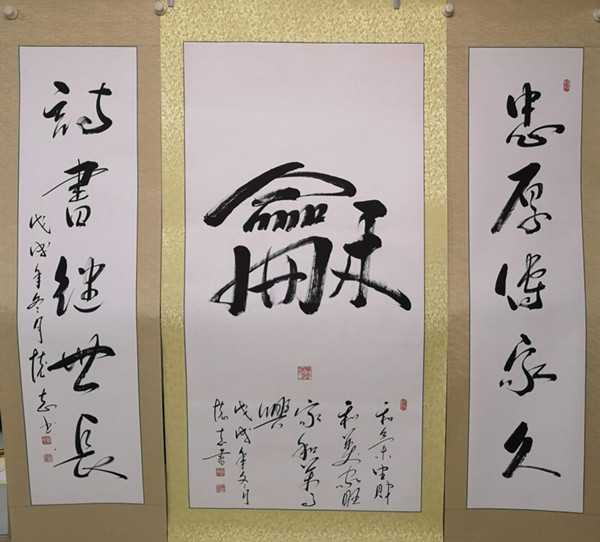 忠厚傳家久
龢
和生財
和美家旺
家和萬事
興
戊戌年冬月
志書
詩書繼世長
戊戌年冬月志书